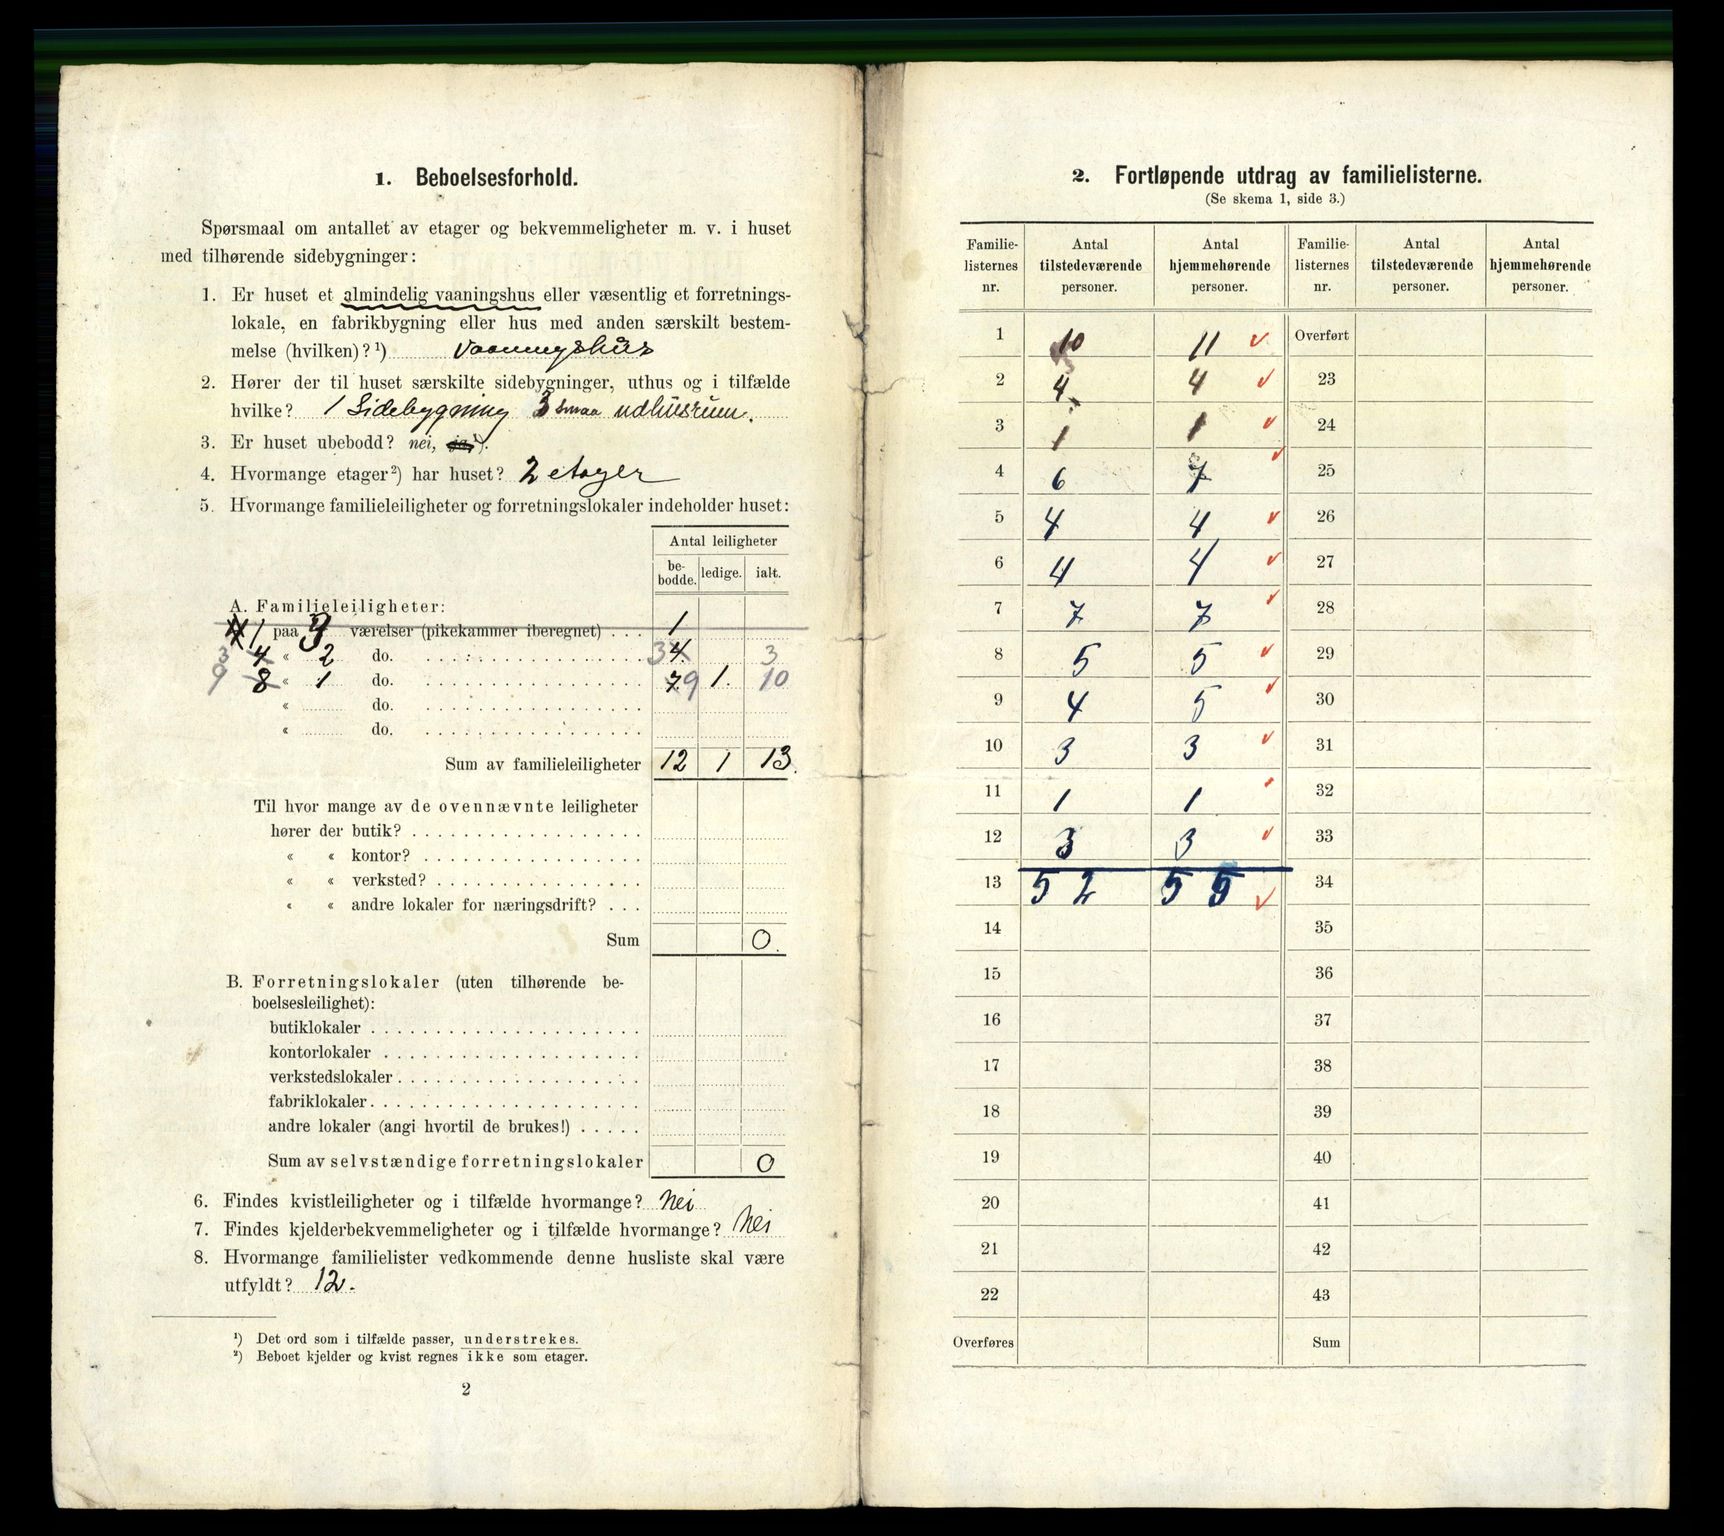 1. Beboelsesforhold.
Spørsmaal om antallet av etager og bekvemmeligheter m. v. i huset
med tilhørende sidebygninger:
1. Er huset et almindelig vaaningshus eller væsentlig et forretnings-
lokale, en fabrikbygning eller hus med anden særskilt bestem-
melse (hvilken)?¹) Vaaningshus
2. Hører der til huset særskilte sidebygninger, uthus og i tilfælde
hvilke? 1 Sidebygning 3 smaa udhusrum.
3. Er huset ubebodd? nei, ja¹).
4. Hvormange etager²) har huset? 2 etager
5. Hvormange familieleiligheter og forretningslokaler indeholder huset:
Antal leiligheter
be-bodde. ledige. ialt.
A. Familieleiligheter:
1 paa 3 værelser (pikekammer iberegnet) . . . 1
3 4 « 2 do. 3 4. 3
9 8 « 1 do. 7 9 1. 10
« do.
« do.
Sum av familieleiligheter 12 1 13.
Til hvor mange av de ovennævnte leiligheter
hører der butik?
« « kontor?
« « verksted?
« « andre lokaler for næringsdrift? . . .
Sum 0.
B. Forretningslokaler (uten tilhørende be-
boelsesleilighet):
butiklokaler
kontorlokaler
verkstedslokaler
fabriklokaler
andre lokaler (angi hvortil de brukes!)
Sum av selvstændige forretningslokaler 0
6. Findes kvistleiligheter og i tilfælde hvormange? Nei
7. Findes kjelderbekvemmeligheter og i tilfælde hvormange? Nei
8. Hvormange familielister vedkommende denne husliste skal være
utfyldt? 12.
¹) Det ord som i tilfælde passer, understrekes.
²) Beboet kjelder og kvist regnes ikke som etager.
2
2. Fortløpende utdrag av familielisterne.
(Se skema 1, side 3.)
Familie- Antal Antal Familie- Antal Antal
listernes tilstedeværende hjemmehørende listernes tilstedeværende hjemmehørende
nr. personer. personer. nr. personer. personer.
1 10 11 ✓ Overført
2 4 4 ✓ 23
3 1 1 ✓ 24
4 6 7 ✓ 25
5 4 4 ✓ 26
6 4 4 ✓ 27
7 7 7 ✓ 28
8 5 5 ✓ 29
9 4 5 ✓ 30
10 3 3 ✓ 31
11 1 1 ✓ 32
12 3 3 ✓ 33
13 52 55 ✓ 34
14 35
15 36
16 37
17 38
18 39
19 40
20 41
21 42
22 43
Overføres Sum